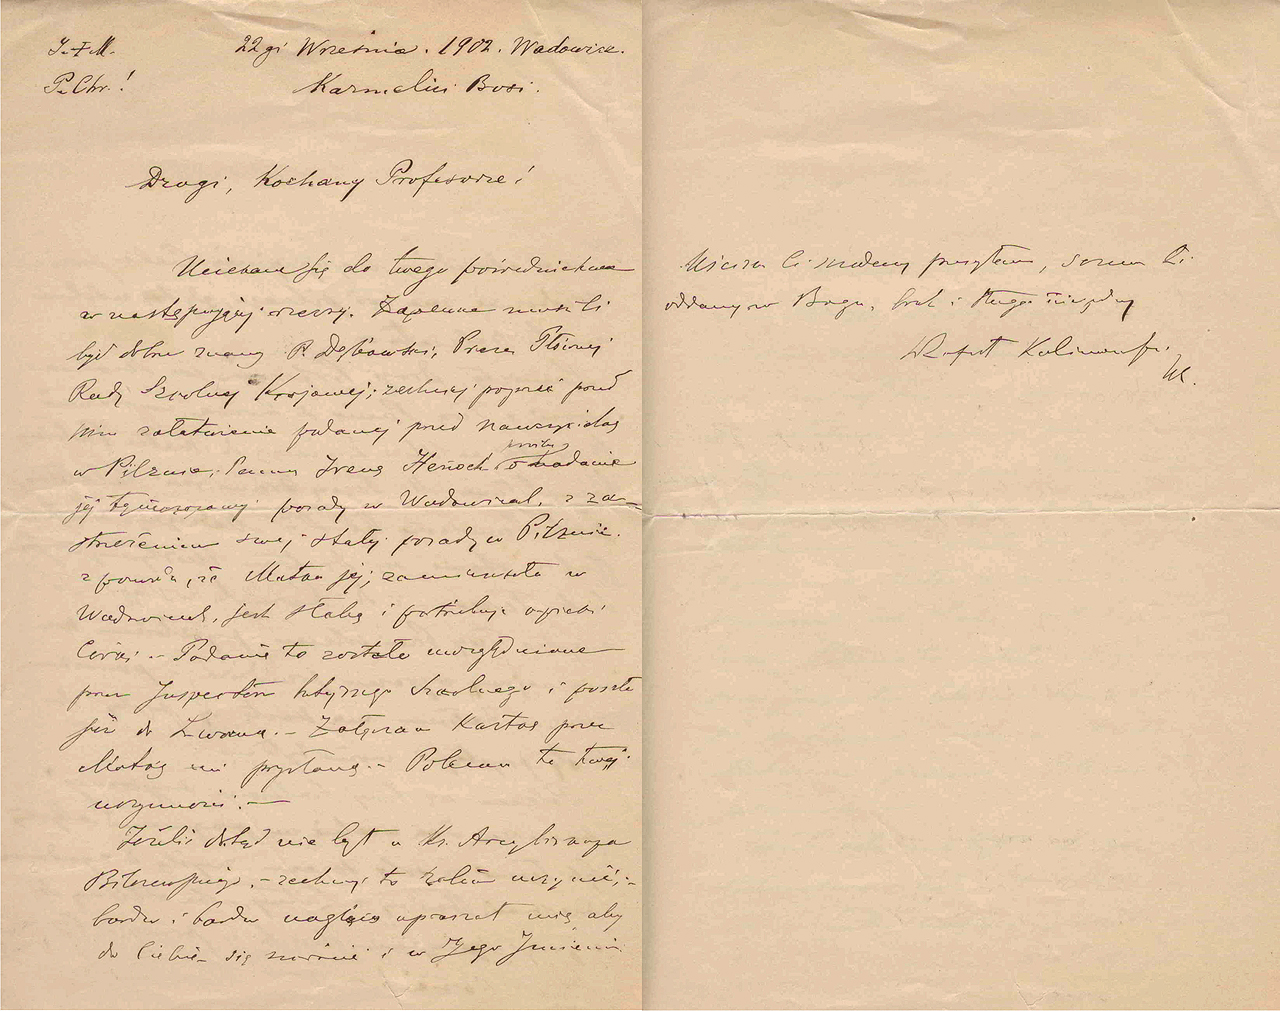 J. + M.
22gi Września. 1902. Wadowice.
P. Chr.!
Karmelici Bosi.
Drogi, Kochany Profesorze!
Uciekam się do twego pośrednictwa
w następującej rzeczy. Zapewne musi Ci
być dobrze znany P. Dębowski, Prezes
Rady Szkolnej Krajowej; zechciej poprzeć przed
nim załatwienie podanej przed nauczycielkę
w Pilznie, Pannę Irenę Henoch prośby o nadanie
jej tymczasowej posady w Wadowicach, z za-
strzeżeniem swej stałej posady w Pilznie.
z powodu, że Matka jej, zamieszkała w
Wadowicach, jest słabą i potrzebuje opieki
Córki. – Podanie to zostało uwzględnione
przez Inspektora tutejszego Szkolnego i poszło
już do Lwowa. – Załączam Kartkę przez
Matkę mi przysłaną. – Polecam to twej
uczynności. –
Jeżeli dotąd nie był u Ks. Arcybiskupa
Bilczewskiego, – zechciej to uczynić; –
bardzo i bardzo upraszał mię aby
do Ciebie się zwrócić i w Jego Imieniu
przesyłam, sercem Ci
oddany w Bogu, brat i sługa
Rafał Kalinowski